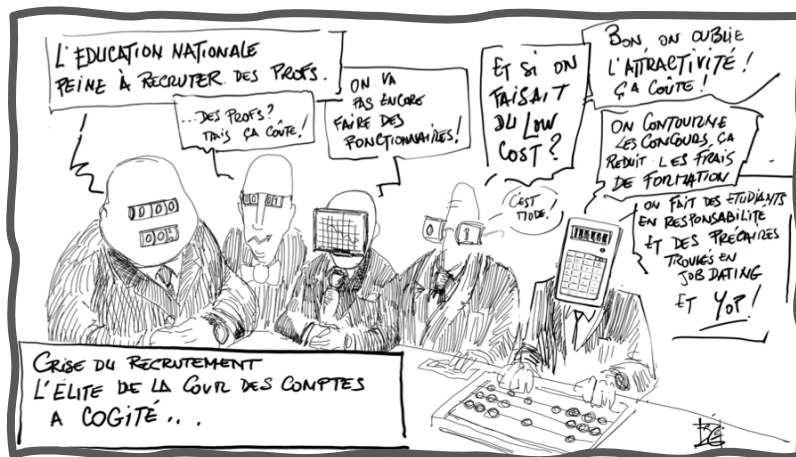 L'EDUCATION NATIONALE
PEINE À RECRUTER DES PROFS.
...DES PROFS?
MAIS ÇA COÛTE!
ON VA
PAS ENCORE
FAIRE DES
FONCTIONNAIRES!
ET SI ON
FAISAIT
DU LOW
COST?
C'EST
MODE!
BON, ON OUBLIE
L'ATTRACTIVITÉ!
ÇA COÛTE!
ON CONTOURNE
LES CONCOURS, ÇA
REDUIT LES FRAIS
DE FORMATION
ON FAIT DES ETUDIANTS
EN RESPONSABILITE
ET DES PRÉCAIRES
TROUVÉS EN
JOB DATING
ET YOP!
CRISE DU RECRUTEMENT
L'ÉLITE DE LA COUR DES COMPTES
A COGITÉ...